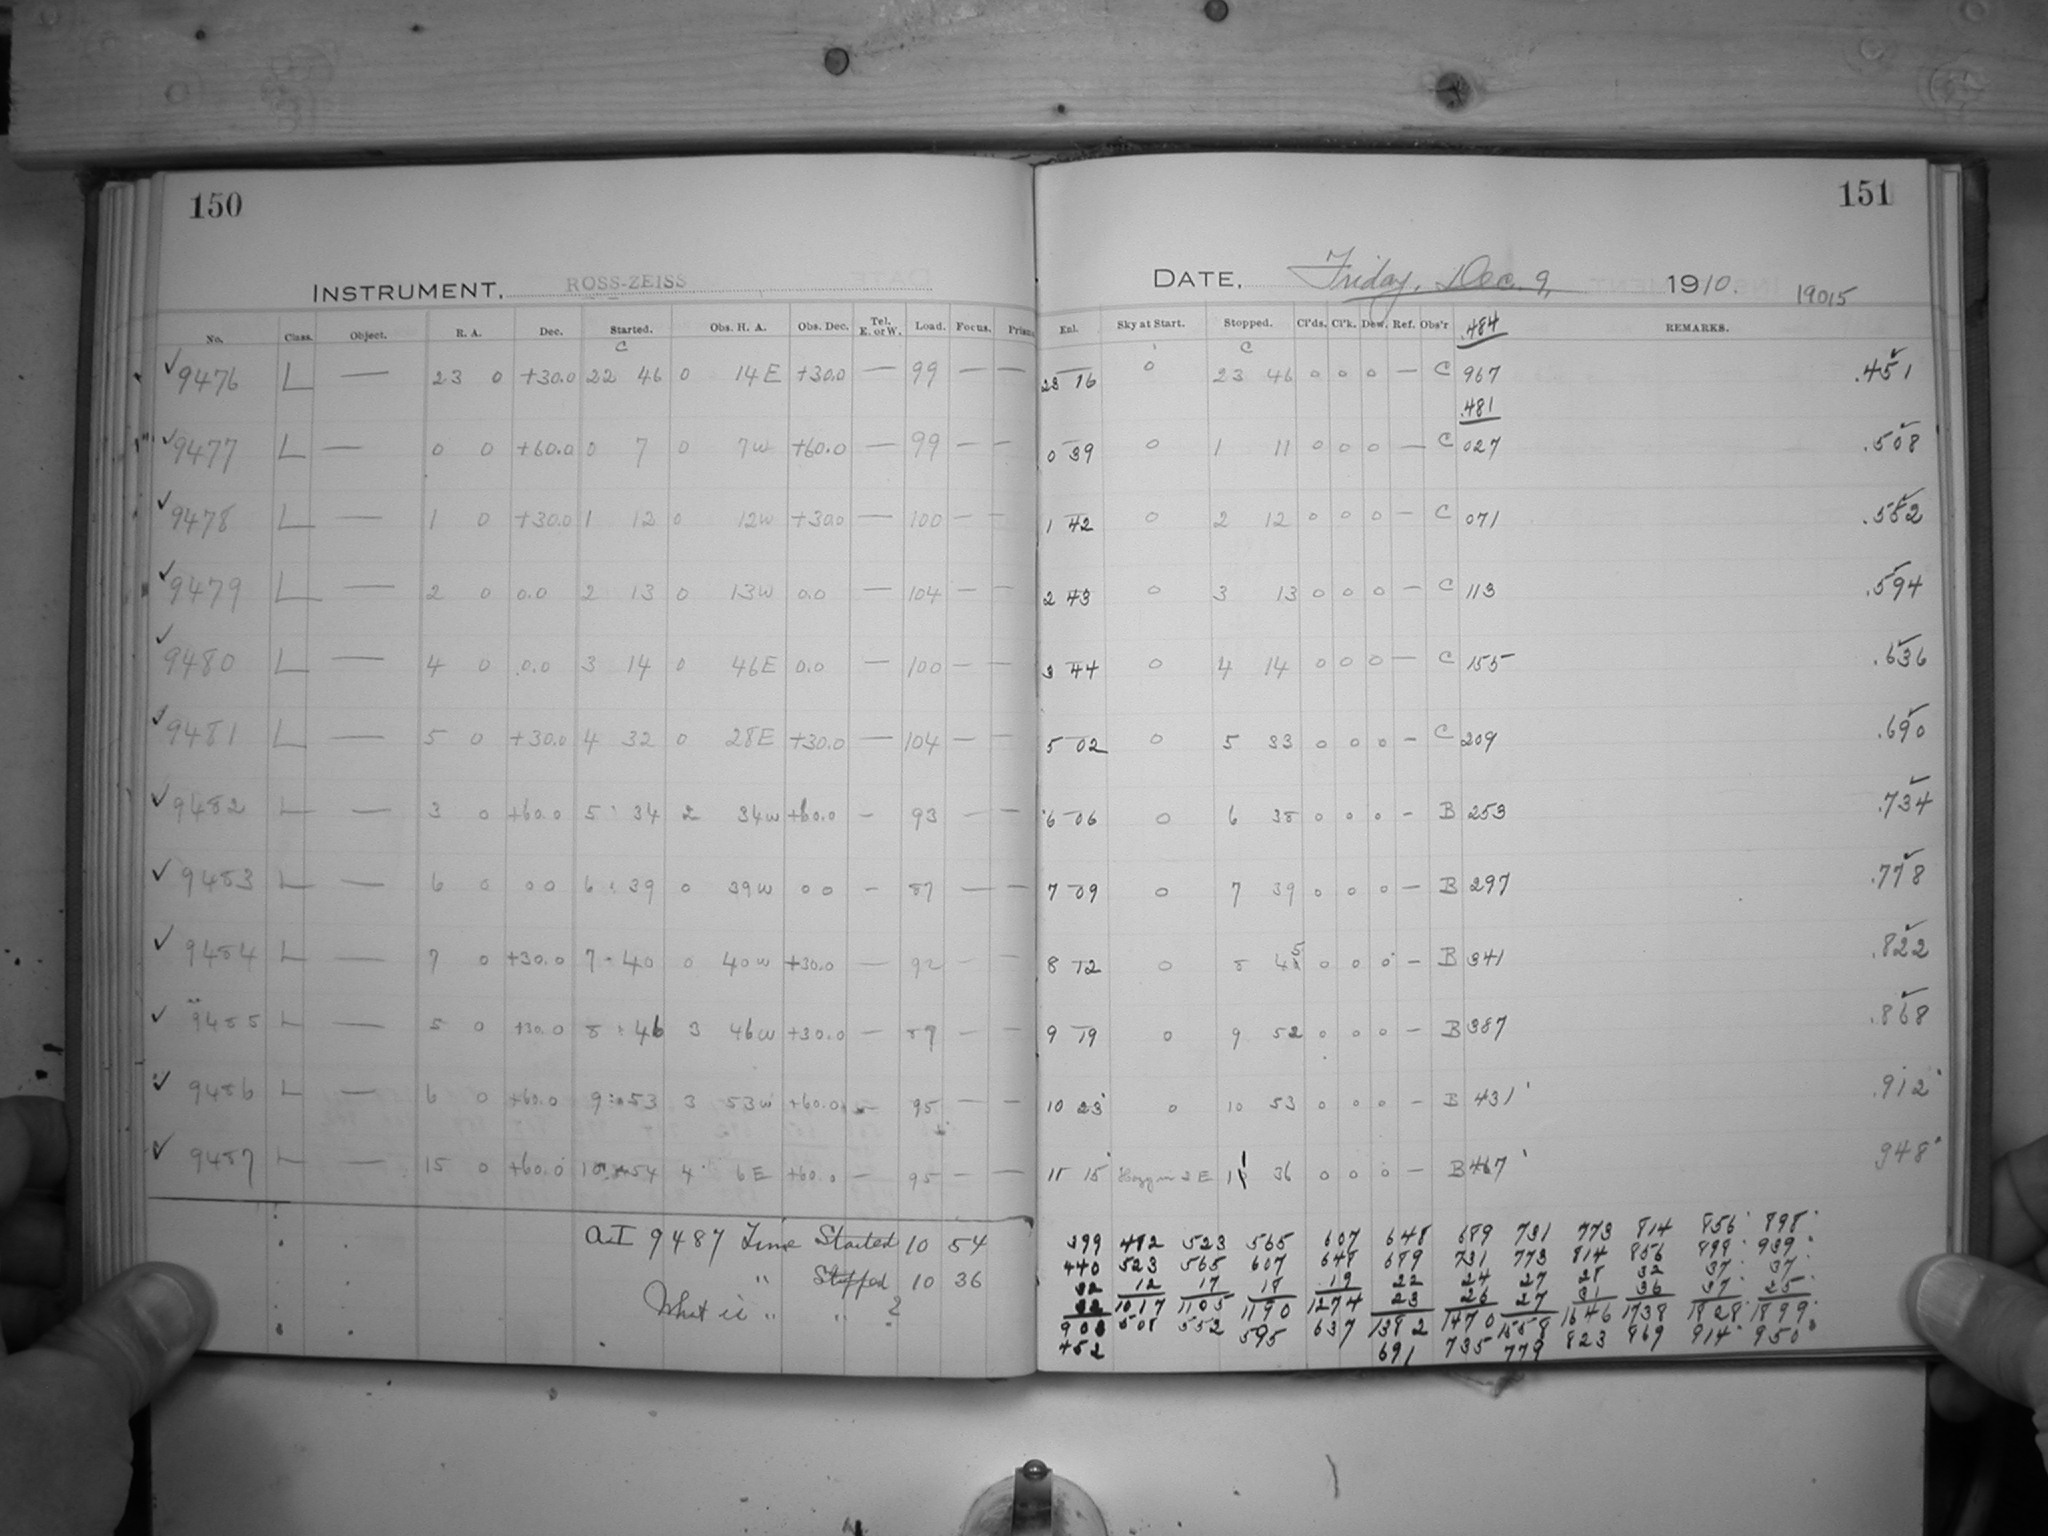 150
INSTRUMENT, ROSS-ZEISS
No. Class. Object. R. A. Dec. Started. Obs. H. A. Obs. Dec. Tel. E. or W. Load. Focus. Prism
C
9476 L — 23 0 +30.0 22 46 0 14 E +30.0 — 99 — —
9477 L — 0 0 +60.0 0 7 0 7w +60.0 — 99 — —
9478 L — 1 0 +30.0 1 12 0 12w +30.0 — 100 — —
9479 L — 2 0 0.0 2 13 0 13w 0.0 — 104 — —
9480 L — 4 0 0.0 3 14 0 46E 0.0 — 100 — —
9481 L — 5 0 +30.0 4 32 0 28E +30.0 — 104 — —
9482 L — 3 0 +60.0 5 34 2 34w +60.0 — 93 — —
9483 L — 6 0 0 0 6 39 0 39w 0 0 — 87 — —
9484 L — 7 0 +30.0 7 40 0 40w +30.0 — 92 — —
9485 L — 5 0 +30.0 8 46 3 46w +30.0 — 89 — —
9486 L — 6 0 +60.0 9 53 3 53w +60.0 — 95 — —
9487 L — 15 0 +60.0 10 54 4 6E +60.0 — 95 — —
A.I 9487 Time Started 10 54
" Stopped 10 36
What is " " ?
151
DATE, Friday, Dec. 9, 1910. 19015
Exl. Sky at Start. Stopped. Cl'ds. Cl'k. Dew. Ref. Obs'r .484 REMARKS.
C
23 16 0 23 46 0 0 0 — C 967 .451
.481
0 39 0 1 11 0 0 0 — C 027 .508
1 42 0 2 12 0 0 0 — C 071 .552
2 43 0 3 13 0 0 0 — C 113 .594
3 44 0 4 14 0 0 0 — C 155 .636
5 02 0 5 33 0 0 0 — C 209 .690
6 06 0 6 38 0 0 0 — B 253 .734
7 09 0 7 39 0 0 0 — B 297 .778
8 12 0 8 45 0 0 0 — B 341 .822
9 19 0 9 52 0 0 0 — B 387 .868
10 23 0 10 53 0 0 0 — B 431 .912
11 15 E 11 36 0 0 0 — B 467 948
399 482 523 565 607 648 689 731 773 814 856 898
440 523 565 607 648 689 731 773 814 856 898 939
32 12 17 18 19 22 24 27 28 32 37 37
32 1017 1105 1190 1274 23 26 27 31 36 37 25
903 508 552 595 637 1382 1470 1558 1646 1738 1828 1899
452 691 735 779 823 869 914 950